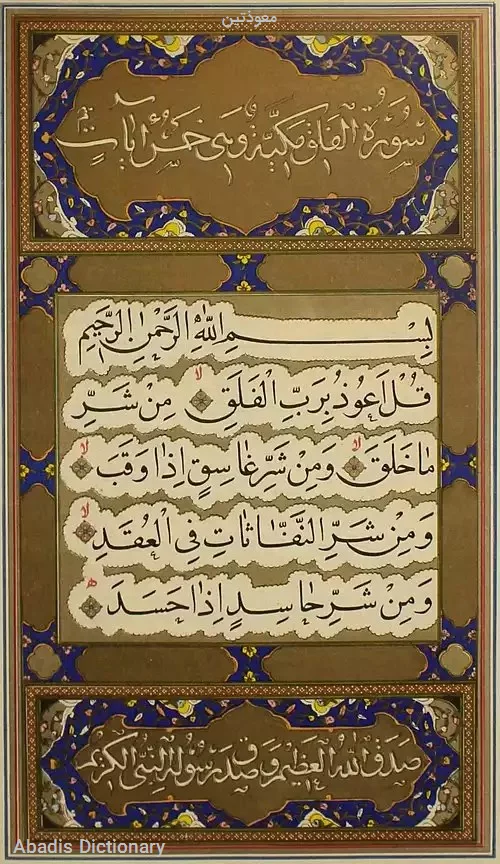 معوذتين
سورة الفلق مكية وهى خمس ايات
بِسْمِ اللّٰهِ الرَّحْمٰنِ الرَّحِيْمِ
قُلْ اَعُوْذُ بِرَبِّ الْفَلَقِ لا مِنْ شَرِّ
مَا خَلَقَ لا وَمِنْ شَرِّ غَاسِقٍ اِذَا وَقَبَ لا
وَمِنْ شَرِّ النَّفَّاثَاتِ فِى الْعُقَدِ لا
وَمِنْ شَرِّ حَاسِدٍ اِذَا حَسَدَ
صدق الله العظيم وصدق رسوله النبى الكريم
Abadis Dictionary